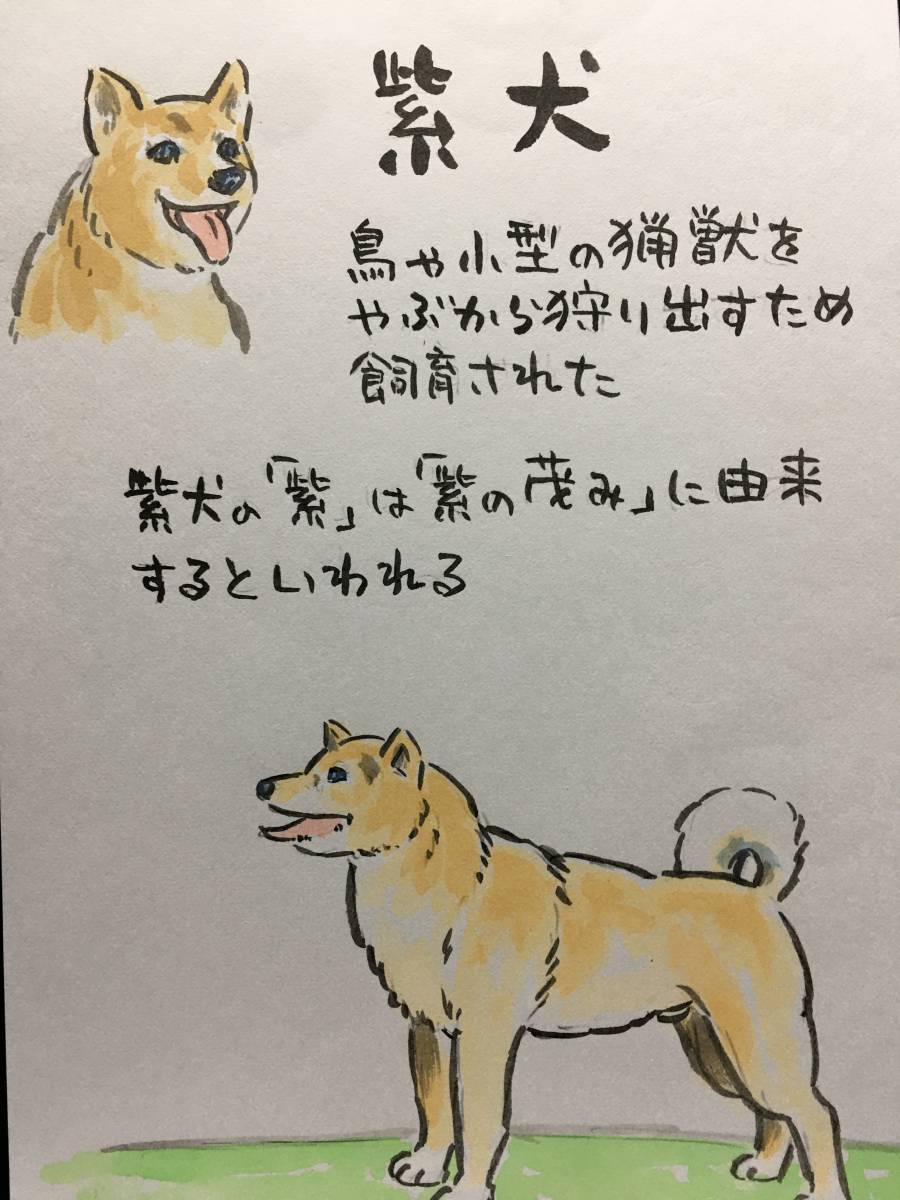 紫犬
鳥や小型の猟獣を
やぶから狩り出すため
飼育された
紫犬の「紫」は「紫の茂み」に由来
するといわれる